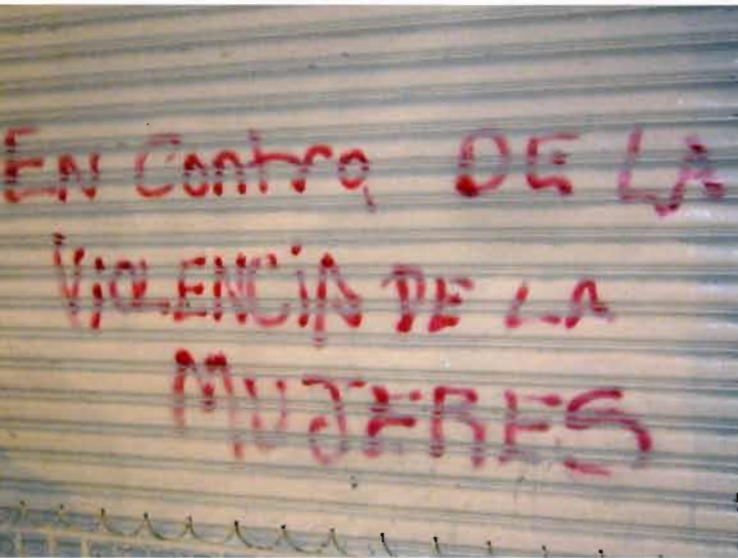 EN Contra DE LA
VIOLENCIA DE LA
MUJERES